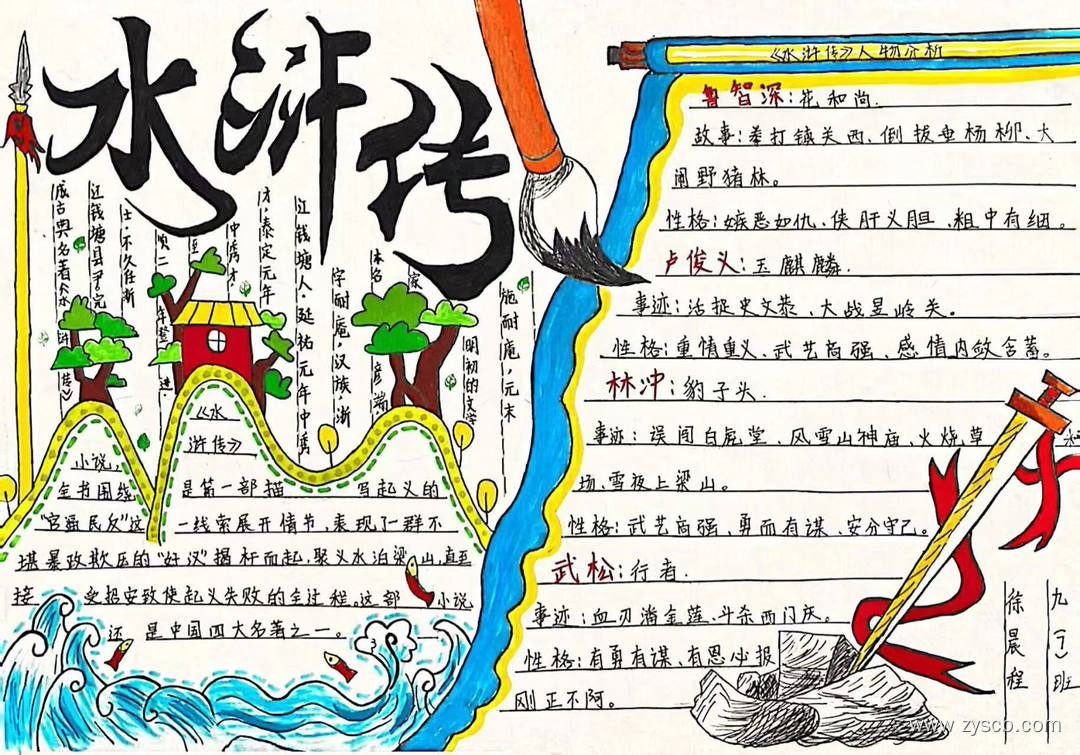 水浒传
施耐庵,元末
明初的文学
家
本名
彦端
字耐庵,汉族,浙
江钱塘人,延祐元年仲秀
才,泰定元年
仲秀才,
至
顺二
年登进
士,不久任浙
江钱塘县尹,完
成古典名著《水浒传》
《水
浒传》
是第一部描写起义的
小说,
全书围绕
"官逼民反"这一线索展开情节,表现了一群不
堪暴政欺压的"好汉"揭杆而起,聚义水泊梁山,直至
接受招安致使起义失败的全过程。这部小说
还是中国四大名著之一。
《水浒传》人物分析
鲁智深:花和尚.
故事:拳打镇关西、倒拔垂杨柳、大
闹野猪林。
性格:嫉恶如仇、侠肝义胆、粗中有细。
卢俊义:玉麒麟.
事迹:活捉史文恭、大战昱岭关。
性格:重情重义、武艺高强、感情内敛含蓄。
林冲:豹子头.
事迹:误闯白虎堂、风雪山神庙、火烧草
场、雪夜上梁山。
性格:武艺高强、勇而有谋、安分守己。
武松:行者.
事迹:血刃潘金莲、斗杀西门庆。
性格:有勇有谋、有恩必报
刚正不阿。
九(7)班
徐晨程
www.zyscp.com